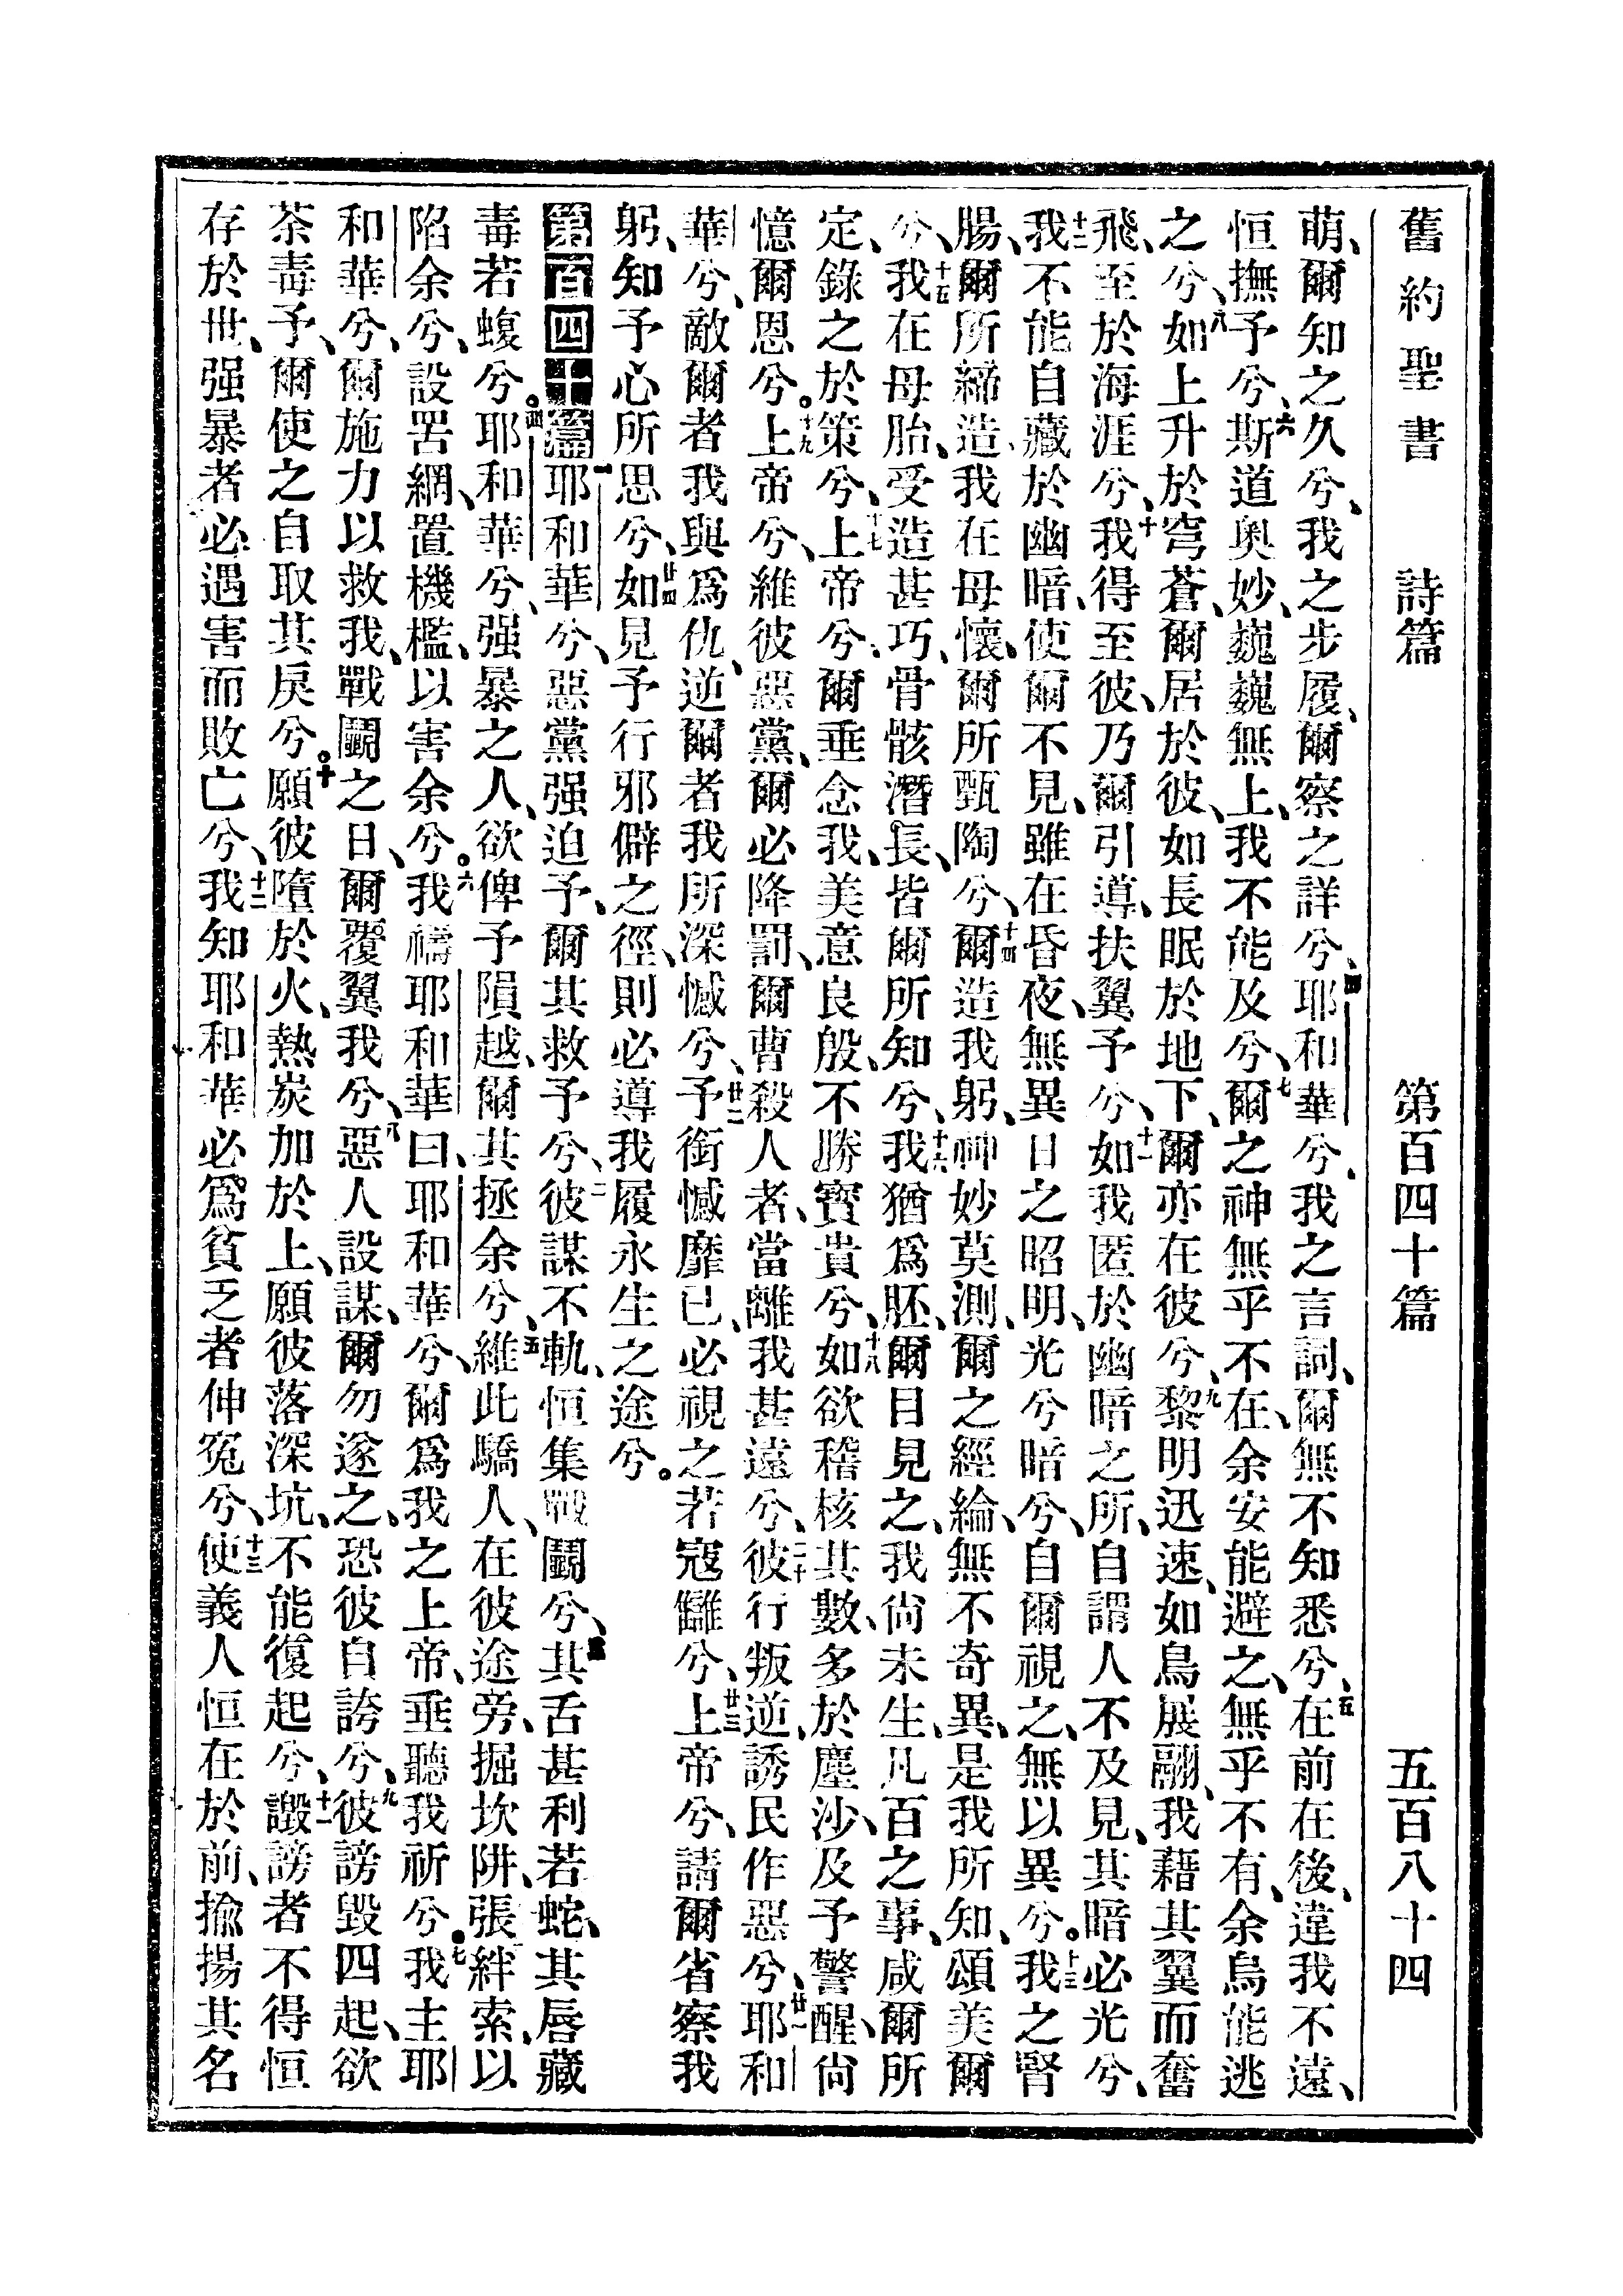 舊約聖書　詩篇　第百四十篇　五百八十四
萌、爾知之久兮、我之步履、爾察之詳兮、四耶和華兮、我之言詞、爾無不知悉兮、五在前在後、違我不遠、
恒撫予兮、六斯道奧妙、巍巍無上、我不能及兮、七爾之神無乎不在、余安能避之、無乎不有、余烏能逃
之兮、八如上升於穹蒼、爾居於彼、如長眠於地下、爾亦在彼兮、九黎明迅速、如鳥展翮、我藉其翼而奮
飛、至於海涯兮、十我得至彼、乃爾引導、扶翼予兮、十一如我匿於幽暗之所、自謂人不及見、其暗必光兮、
十二我不能自藏於幽暗、使爾不見、雖在昏夜、無異日之昭明、光兮暗兮、自爾視之、無以異兮。十三我之腎
腸、爾所締造、我在母懷、爾所甄陶兮、十四爾造我躬、神妙莫測、爾之經綸、無不奇異、是我所知、頌美爾
兮、十五我在母胎、受造甚巧、骨骸潛長、皆爾所知兮、十六我猶爲胚、爾目見之、我尙未生、凡百之事、咸爾所
定、錄之於策兮、十七上帝兮、爾垂念我、美意良殷、不勝寶貴兮、十八如欲稽核其數、多於塵沙、及予警醒、尙
憶爾恩兮。十九上帝兮、維彼惡黨、爾必降罰、爾曹殺人者、當離我甚遠兮、二十彼行叛逆、誘民作惡兮、廿一耶和
華兮、敵爾者我與爲仇、逆爾者我所深憾兮、廿二予銜憾靡已、必視之若寇讎兮、廿三上帝兮、請爾省察我
躬、知予心所思兮、廿四如見予行邪僻之徑、則必導我履永生之途兮。
第百四十篇一耶和華兮、惡黨强迫予、爾其救予兮、二彼謀不軌、恒集戰鬬兮、三其舌甚利若蛇、其唇藏
毒若蝮兮。四耶和華兮、强暴之人、欲俾予隕越、爾其拯余兮、五維此驕人、在彼途旁、掘坎阱、張絆索、以
陷余兮、設罟網、置機檻、以害余兮。六我禱耶和華曰、耶和華兮、爾爲我之上帝、垂聽我祈兮。七我主耶
和華兮、爾施力以救我、戰鬬之日、爾覆翼我兮、八惡人設謀、爾勿遂之、恐彼自誇兮、九彼謗毀四起、欲
荼毒予、爾使之自取其戾兮。十願彼墮於火、熱炭加於上、願彼落深坑、不能復起兮、十一譭謗者不得恒
存於世、强暴者必遇害而敗亡兮、十二我知耶和華必爲貧乏者伸寃兮、十三使義人恒在於前、揄揚其名